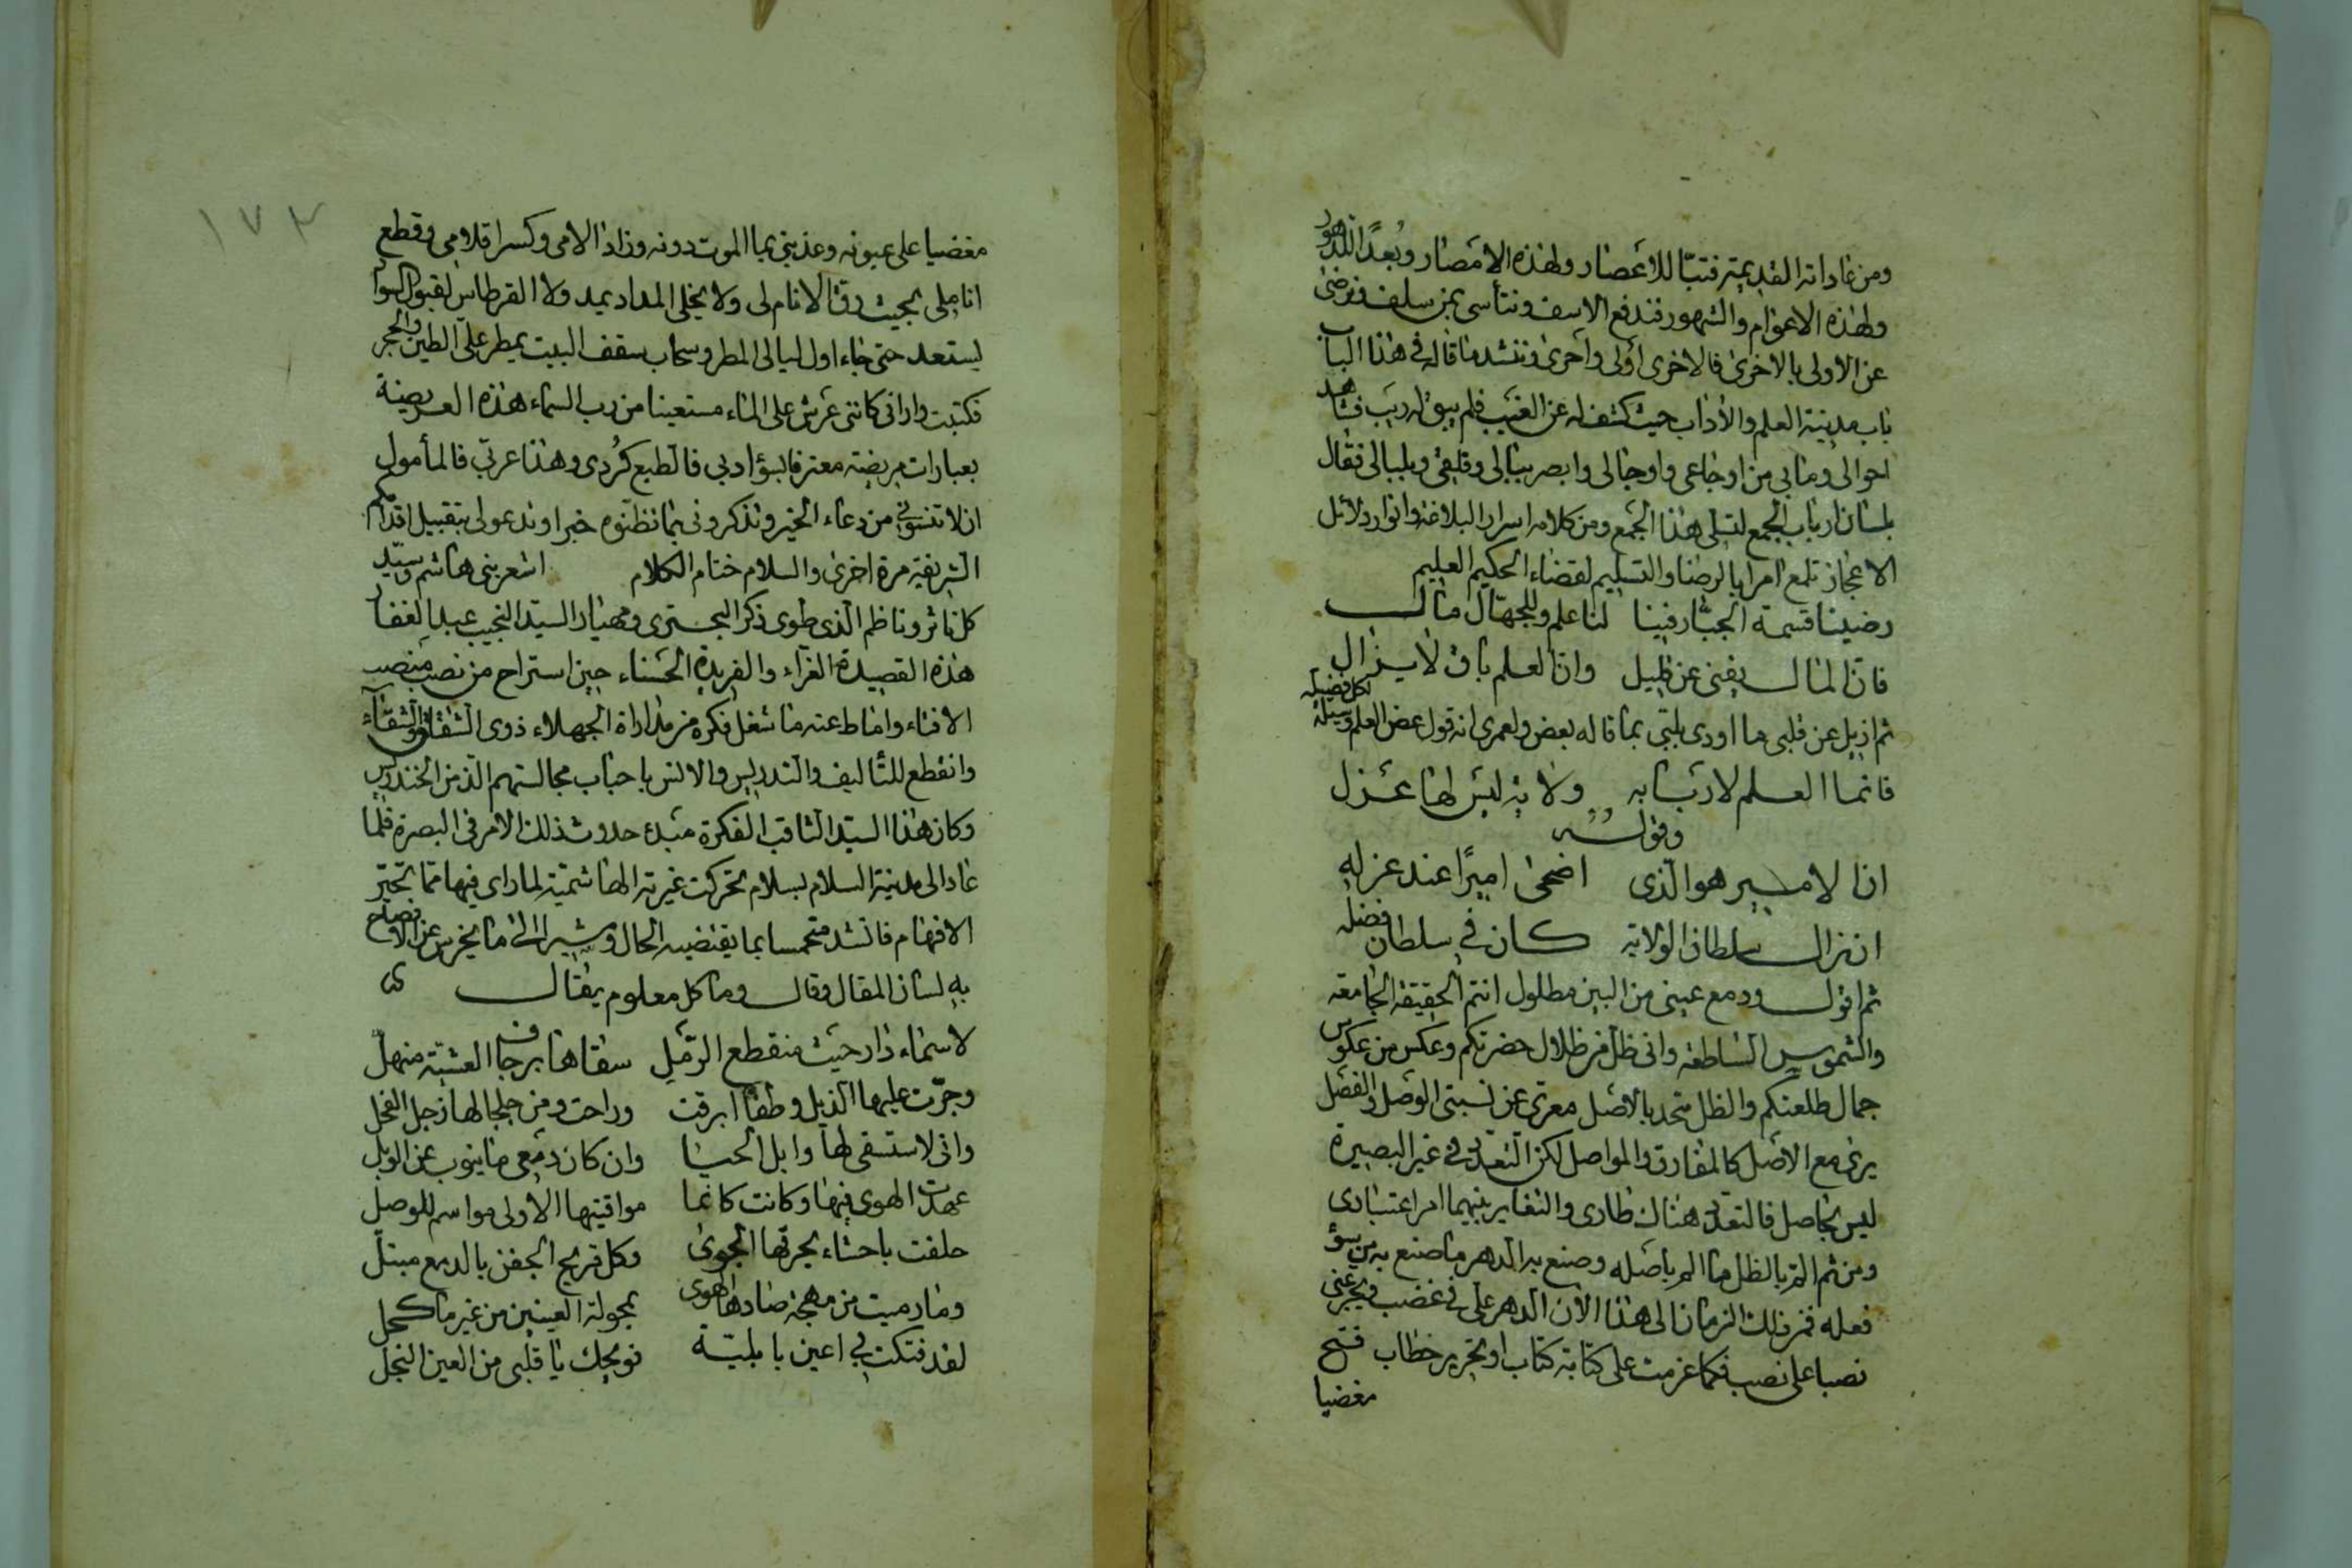 ومن عاداته القديمة فتبّا للاعصار ولهذه الامصار وبُعدًا للدهور
ولهذه الاعوام والشهور فندفع الاسف ونتأسى بمن سلف ونرضى
عن الاولى بالاخرى فالاخرى اولى واحرى وننشد ما قاله في هذا الباب
باب مدينة العلم والآداب حيث كشف له عن الغيب فلم يبق له ريب فشاهد
احوالى وما بى من اوجاعى واوجالى وابصر ببالى وقلقى وبلبالى فقال
بلسان ارباب الجمع لتسلى هذا الجمع ومن كلامه اسرار البلاغة وانوار دلائل
الاعجاز تلمع امرا بالرضا والتسليم لقضاء الحكيم العليم
رضينا قسمة الجبّار فينا لنا علم وللجهّال مال
فانّ المال يفنى عن قليل وان العلم باق لا يزال
ثم ازيل عن قلبى ما اودى بلبّى بما قاله بعض ولعمرى انه قول عض العلم وسيلة لكل فضيلة
فانما العلم لاربابه ولاية ليس لها عزل
وقوله
ان الامير هو الّذى اضحى اميرًا عند عزله
ان زال سلطان الولاية كان في سلطان فضله
ثم اقول ودمع عينى من البين مطلول انتم الحقيقة الجامعة
والشموس الساطعة وانى ظل من ظلال حضرتكم وعكس من عكوس
جمال طلعتكم والظل متحد بالاصل معرّى عن نسبتى الوصل والفصل
يرى مع الاصل كالمفارق والمواصل لكن التعدّد في غير البصيرة
ليس بحاصل فالتعدد هناك طارى والتغاير بينهما امر اعتبارى
ومن ثم المّ بالظل ما المّ باصله وصنع به الدهر ما صنع به من سوء
فعله فمن ذلك الزمان الى هذا الآن الدهر علىّ في غضب ويجرعنى
نصبا على نصب فكما عزمت على كتابة كتاب او تحرير خطاب فتح
مغضيا
١٧٣
مغضيا على عيونه وعذبنى بما الموت دونه وزاد الامى وكسر اقلامى وقطع
اناملى بحيث رق الانام لى ولا يخلى المداد يمد ولا القرطاس لقبول السواد
يستعد حتى جاء اول ليالى المطر وسحاب سقف البيت يمطر علىّ الطين والحجر
فكتبت وارانى كاننى عرش على الماء مستعينا من رب السماء هذه العريضة
بعبارات مريضة معترفا بسوء ادبى فالطبع كُردى وهذا عربّى فالمأمول
ان لا تنسونى من دعاء الخير وتذكرونى بما تظنوه خيرا وتدعو لى بتقبيل اقدامكم
الشريفة مرة اخرى والسلام ختام الكلام اشعر بنى هاشم وسيّد
كل ناثر وناظم الّذى طوى ذكر البحترى ومهيار السيّد النجيب عبد الغفار
هذه القصيدة الغرّاء والفريدة الحسناء حين استراح من نصب منصب
الافتاء واماط عنه ما شغل فكره من مداراة الجهلاء ذوى الشقاق والشقاء
وانقطع للتأليف والتدريس والانس باحباب مجالستهم الذ من الخندريس
وكان هذا السيّد الثاقب الفكرة مبدء حدوث ذلك الامر في البصرة فلما
عاد الى مدينة السلام بسلام تحركت غيرته الهاشميّة لما راى فيها ممّا تحيّر
الافهام فانشد متحمسا بما يقتضيه الحال ومشيرا الى ما يخرس عن الافصاح
به لسان المقال وقال وما كل معلوم يقال
لاسماء دار حيث منقطع الرّمل سقاها برجاف العشيّة منهلّ
وجرّت عليها الذيل وطفآ ابرقت وراحت ومن جلجالها زجل الفحل
وانى لاستسقى لها وابل الحيا وان كان دمعى ما ينوب عن الوبل
عهدت الهوى فيها وكانت كانما مواقيتها الاولى مواسم للوصل
حلفت باحشاء يحرقها الجوى وكل قريح الجفن بالدمع مبتلّ
وما رميت من مهجة صادها الهوى بمجولة العينين من غير ما كحل
لقد فتكت بى اعين بابليّة فويحك يا قلبى من العين النجل